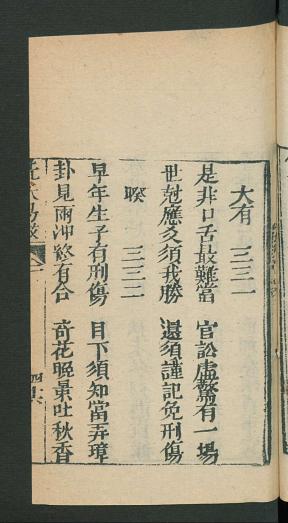 大有 三三二
是非口舌最難當 官訟虛驚有一場
世尅應爻須我勝 還須謹記免刑傷
睽 三三二
早年生子有刑傷 目下須知當弄璋
卦見兩冲有合 奇花晚景吐秋香